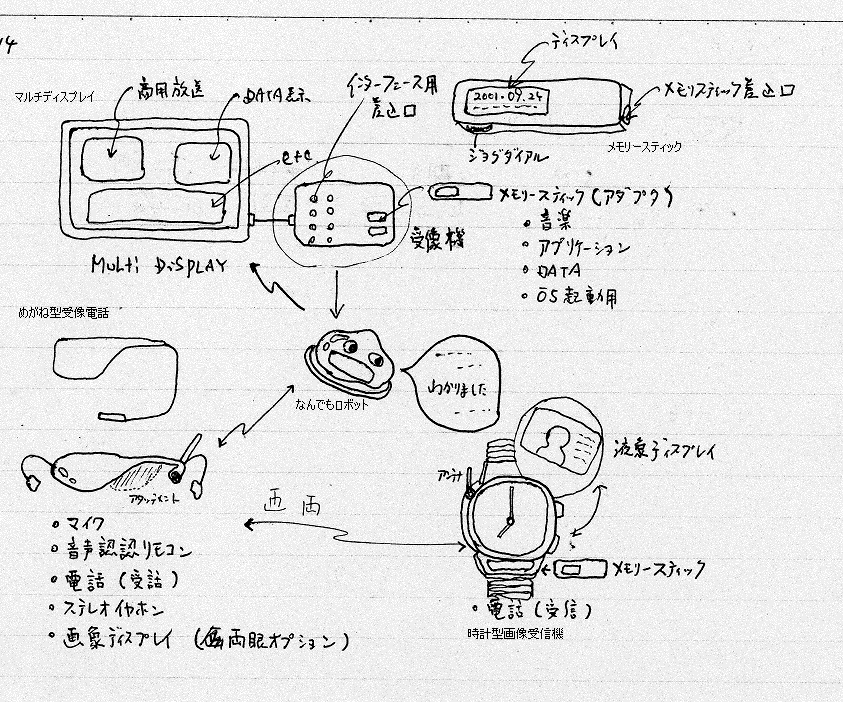 14
マルチディスプレイ
商用放送
DATA表示
etc
MULTi DiSPLAY
インターフェース用
差込口
受像機
ディスプレイ
2001.09.24
ジョグダイアル
メモリスティック差込口
メモリースティック
メモリースティック(アダプタ)
・音楽
・アプリケーション
・DATA
・OS起動用
めがね型受像電話
なんでもロボット
わかりました
アタッチメント
・マイク
・音声認認リモコン
・電話(受話)
・ステレオイヤホン
・画象ディスプレイ
両眼オプション)
アンテナ
液象ディスプレイ
メモリースティック
・電話(受信)
時計型画像受信機